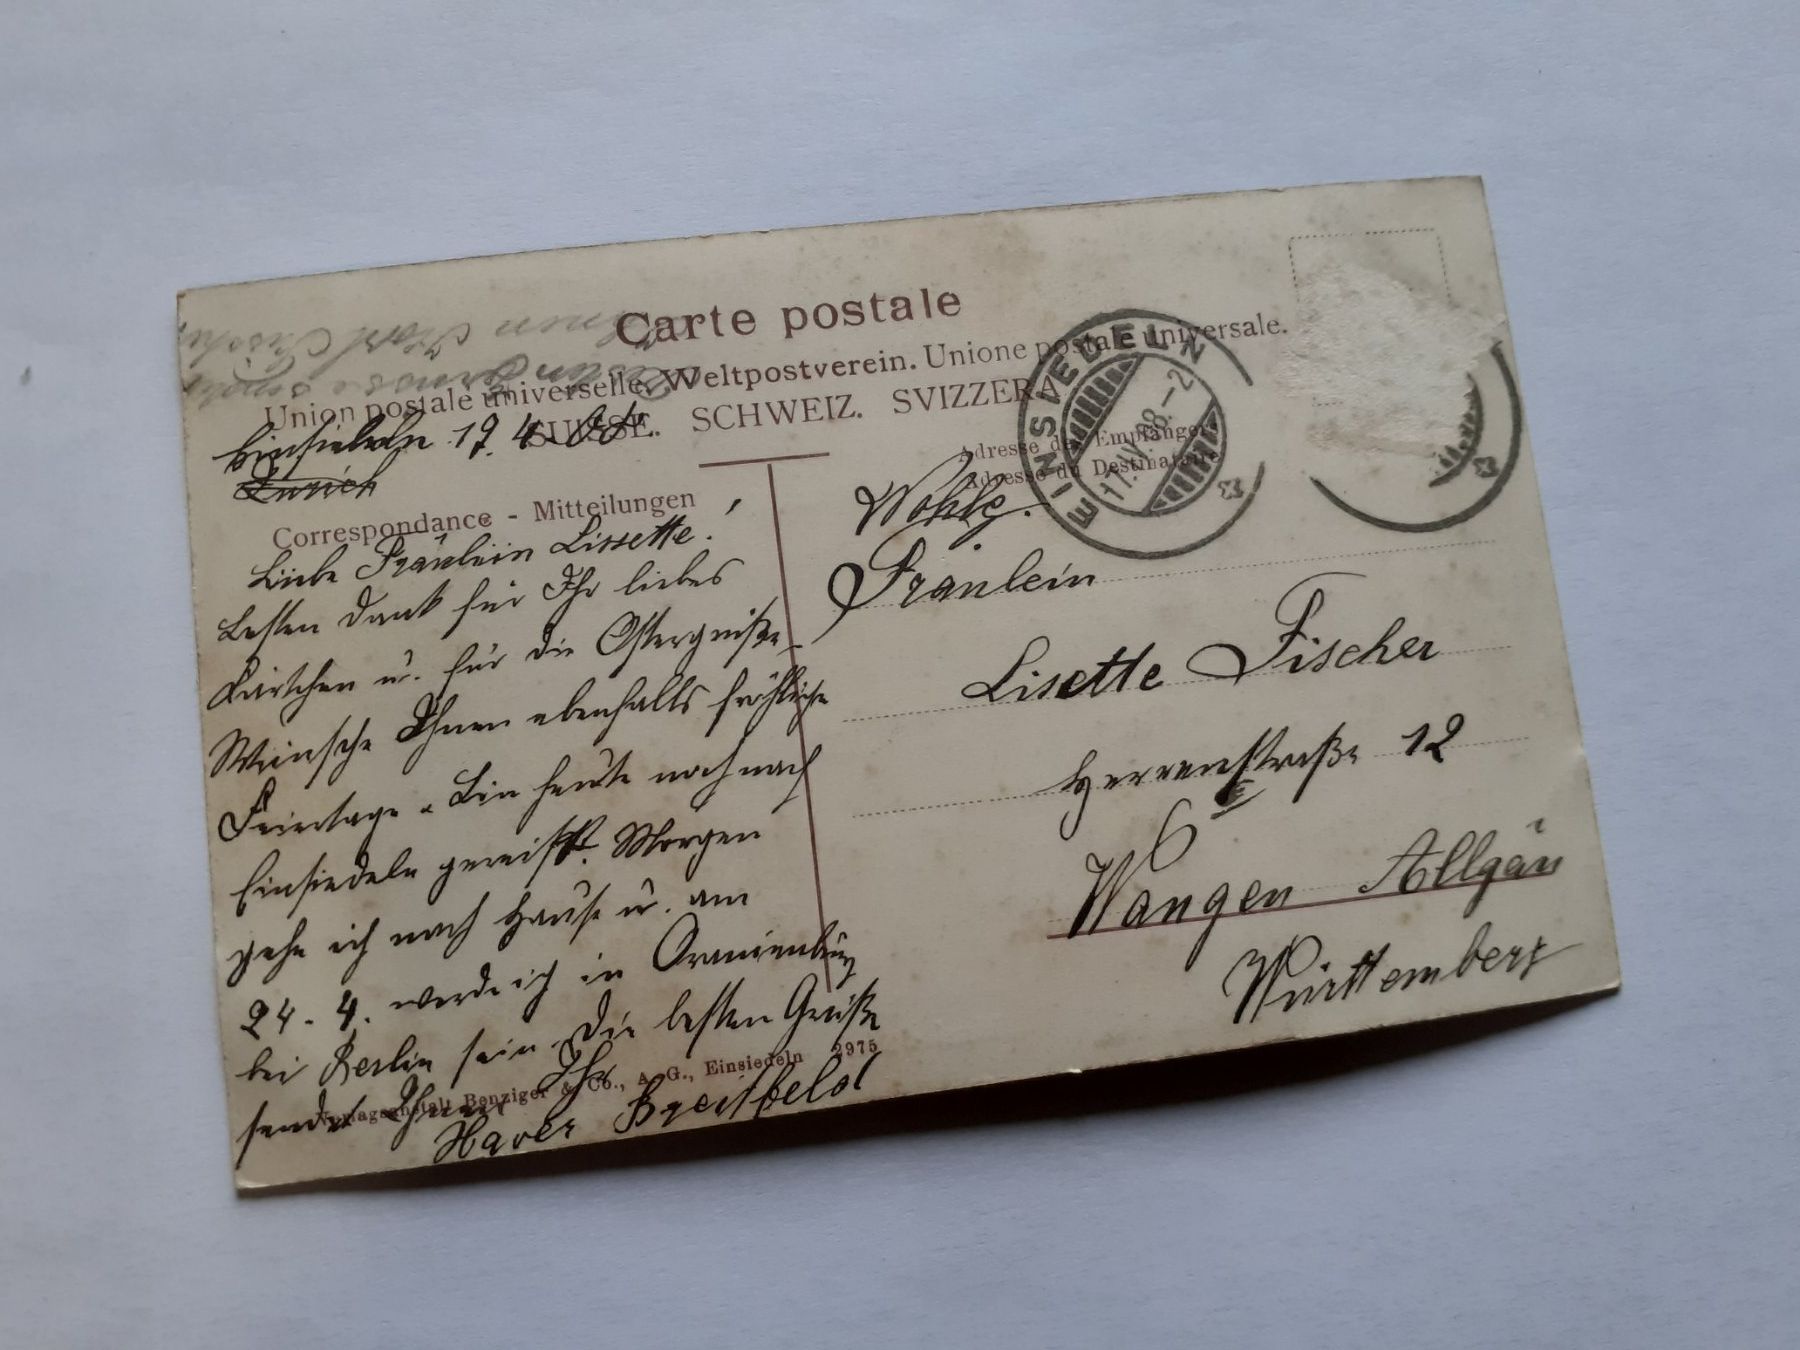 Carte postale
Union postale universelle. Weltpostverein. Unione postale universale.
SUISSE. SCHWEIZ. SVIZZERA
Einsiedeln 17. 4. 08.
Zürich
Correspondance - Mitteilungen
Liebe Fräulein Lissette!
Besten Dank für Ihr liebes
Kärtchen u. für die Ostergrüße
Wünsche Ihnen ebenfalls fröhliche
Feiertage. Bin heute noch nach
Einsiedeln gereist. Morgen
gehe ich nach Hause u. am
24. 4. werde ich in Oranienburg
bei Berlin sein. Die besten Grüße
sendet Ihnen Ihr
Xaver Breitfeld
Verlagsanstalt Benziger & Co., A. G., Einsiedeln 2975
EINSIEDELN
17. IV. 08. - 2
Adresse des Empfängers
Adresse du Destinataire
Wohlg.
Fräulein
Lisette Fischer
Herrenstraße 12
Wangen Allgäu
Württemberg